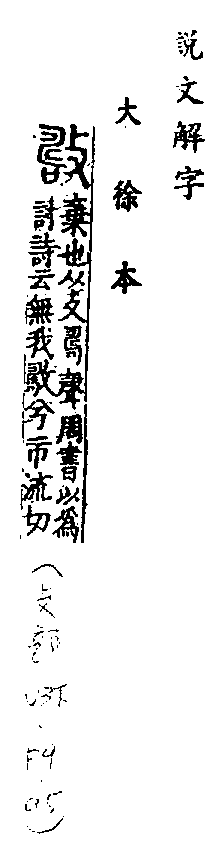 說文解字
大徐本
棄也从攴𠷎聲周書以為
討詩云無我兮市流切
(攴部 3下.F4.05)